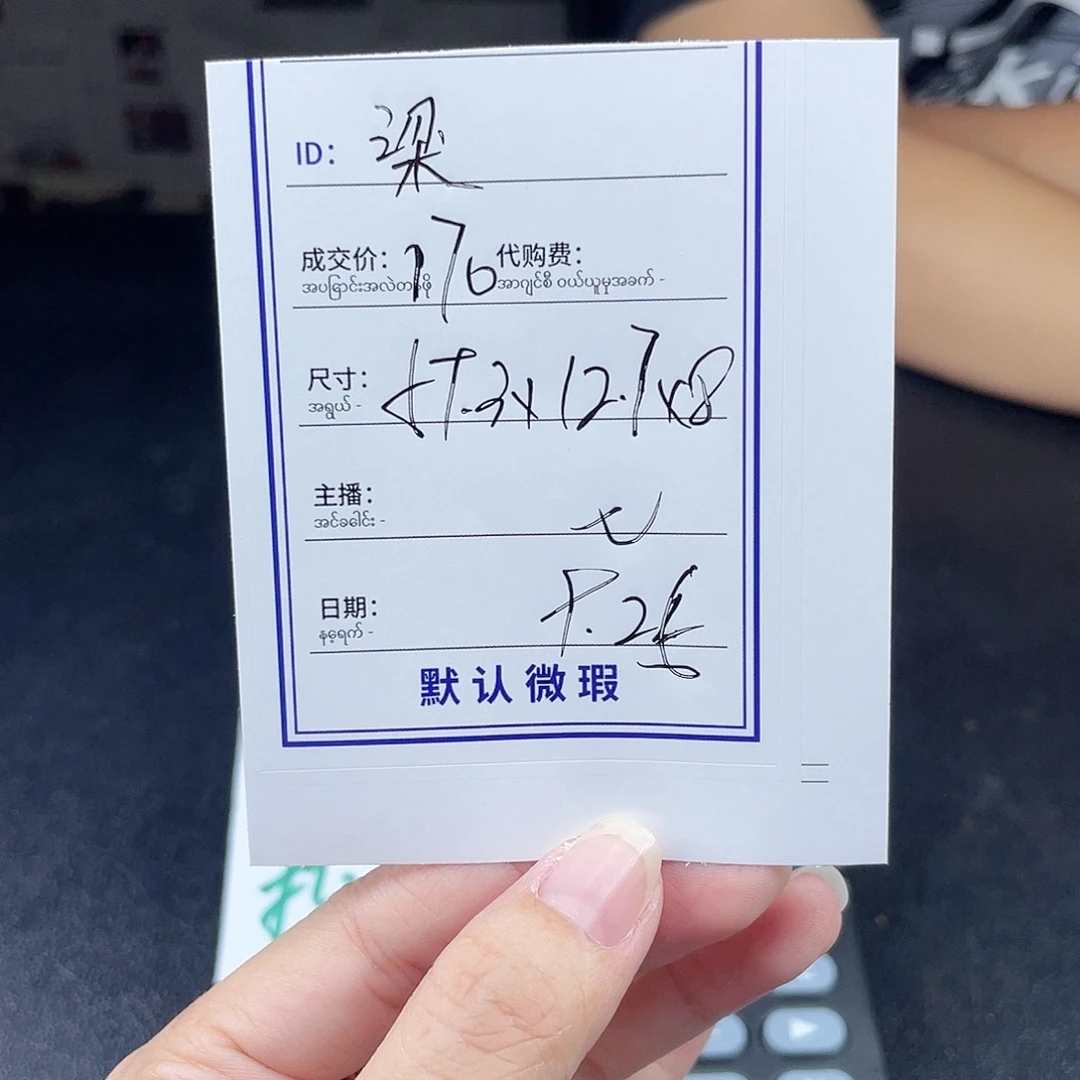 ID: 梁
成交价: 176 代购费:
အပြောင်းအလဲတန်ဖို အာဂျင်စီ ဝယ်ယူမှုအခက် -
尺寸: 57.3x12.7x8
အရွယ် -
主播: 七
အင်ခခေါင်း -
日期:
နေ့ရက် -
默认微瑕